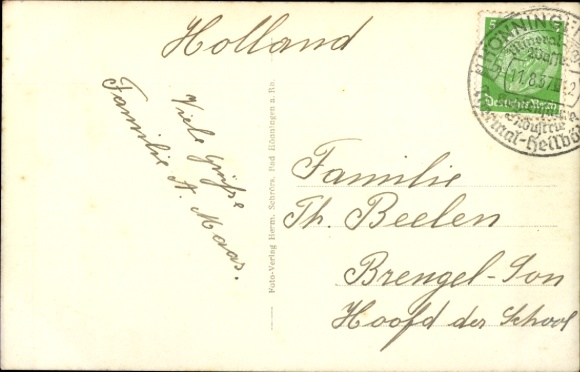 Holland
Viele Grüße
Familie A. Maas.
Foto-Verlag Herm. Schrörs, Bad Hönningen a. Rh.
Familie
Th. Beelen
Brengel-Son
Hoofd der School
5
Deutsches Reich
HÖNNINGEN
Mineral
11.8.37
Industrie
Thermal-Heilbad